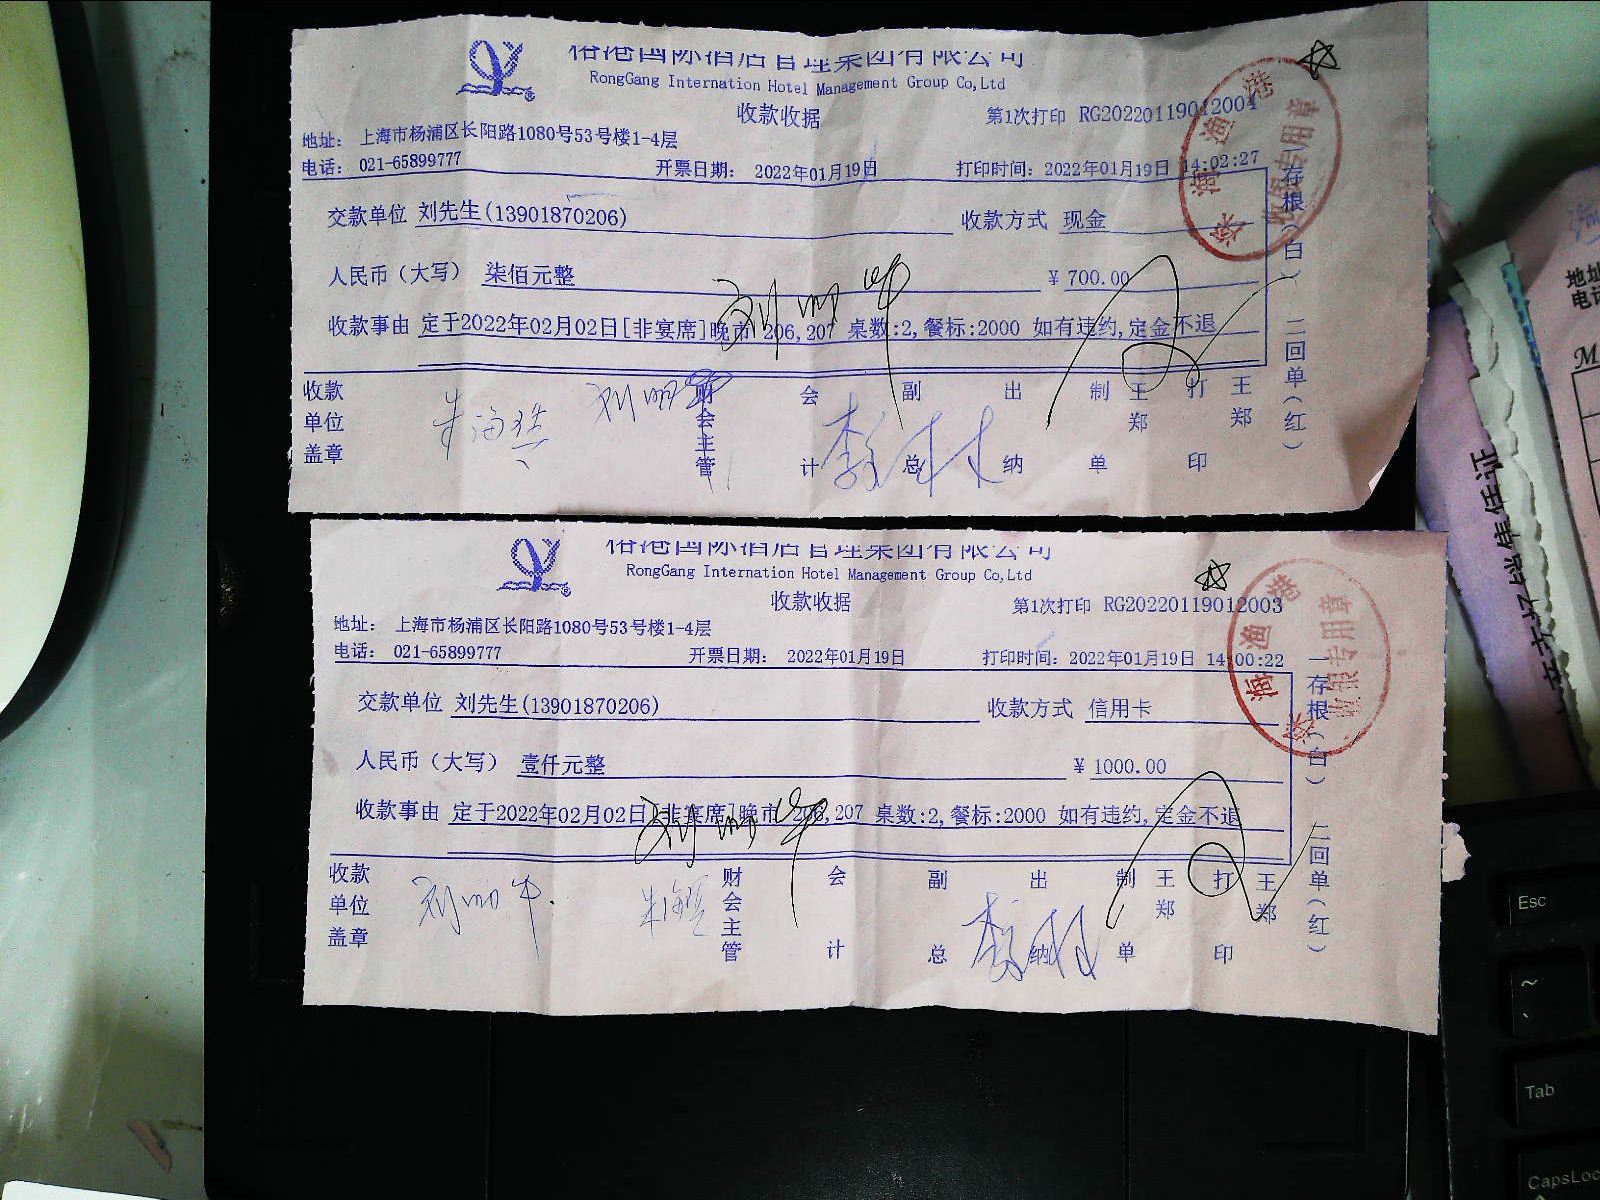 国际酒店管理集团有限公司
RongGang Internation Hotel Management Group Co,Ltd
收款收据
第1次打印 RG20220119012004
地址： 上海市杨浦区长阳路1080号53号楼1-4层
电话： 021-65899777
开票日期： 2022年01月19日
打印时间：2022年01月19日 14:02:27
交款单位 刘先生(13901870206)
收款方式 现金
人民币（大写） 柒佰元整
¥ 700.00
收款事由 定于2022年02月02日[非宴席]晚市 206,207 桌数:2,餐标:2000 如有违约,定金不退
收款单位盖章
财会主管
会计
副总
出纳
制单
王郑
打印
王郑
一存根（白）
二回单（红）
收银专用章
国际酒店管理集团有限公司
RongGang Internation Hotel Management Group Co,Ltd
收款收据
第1次打印 RG20220119012003
地址： 上海市杨浦区长阳路1080号53号楼1-4层
电话： 021-65899777
开票日期： 2022年01月19日
打印时间：2022年01月19日 14:00:22
交款单位 刘先生(13901870206)
收款方式 信用卡
人民币（大写） 壹仟元整
¥ 1000.00
收款事由 定于2022年02月02日[非宴席]晚市 206,207 桌数:2,餐标:2000 如有违约,定金不退
收款单位盖章
财会主管
会计
副总
出纳
制单
王郑
打印
王郑
一存根（白）
二回单（红）
收银专用章
地址
电话
Esc
~
Tab
CapsLoc